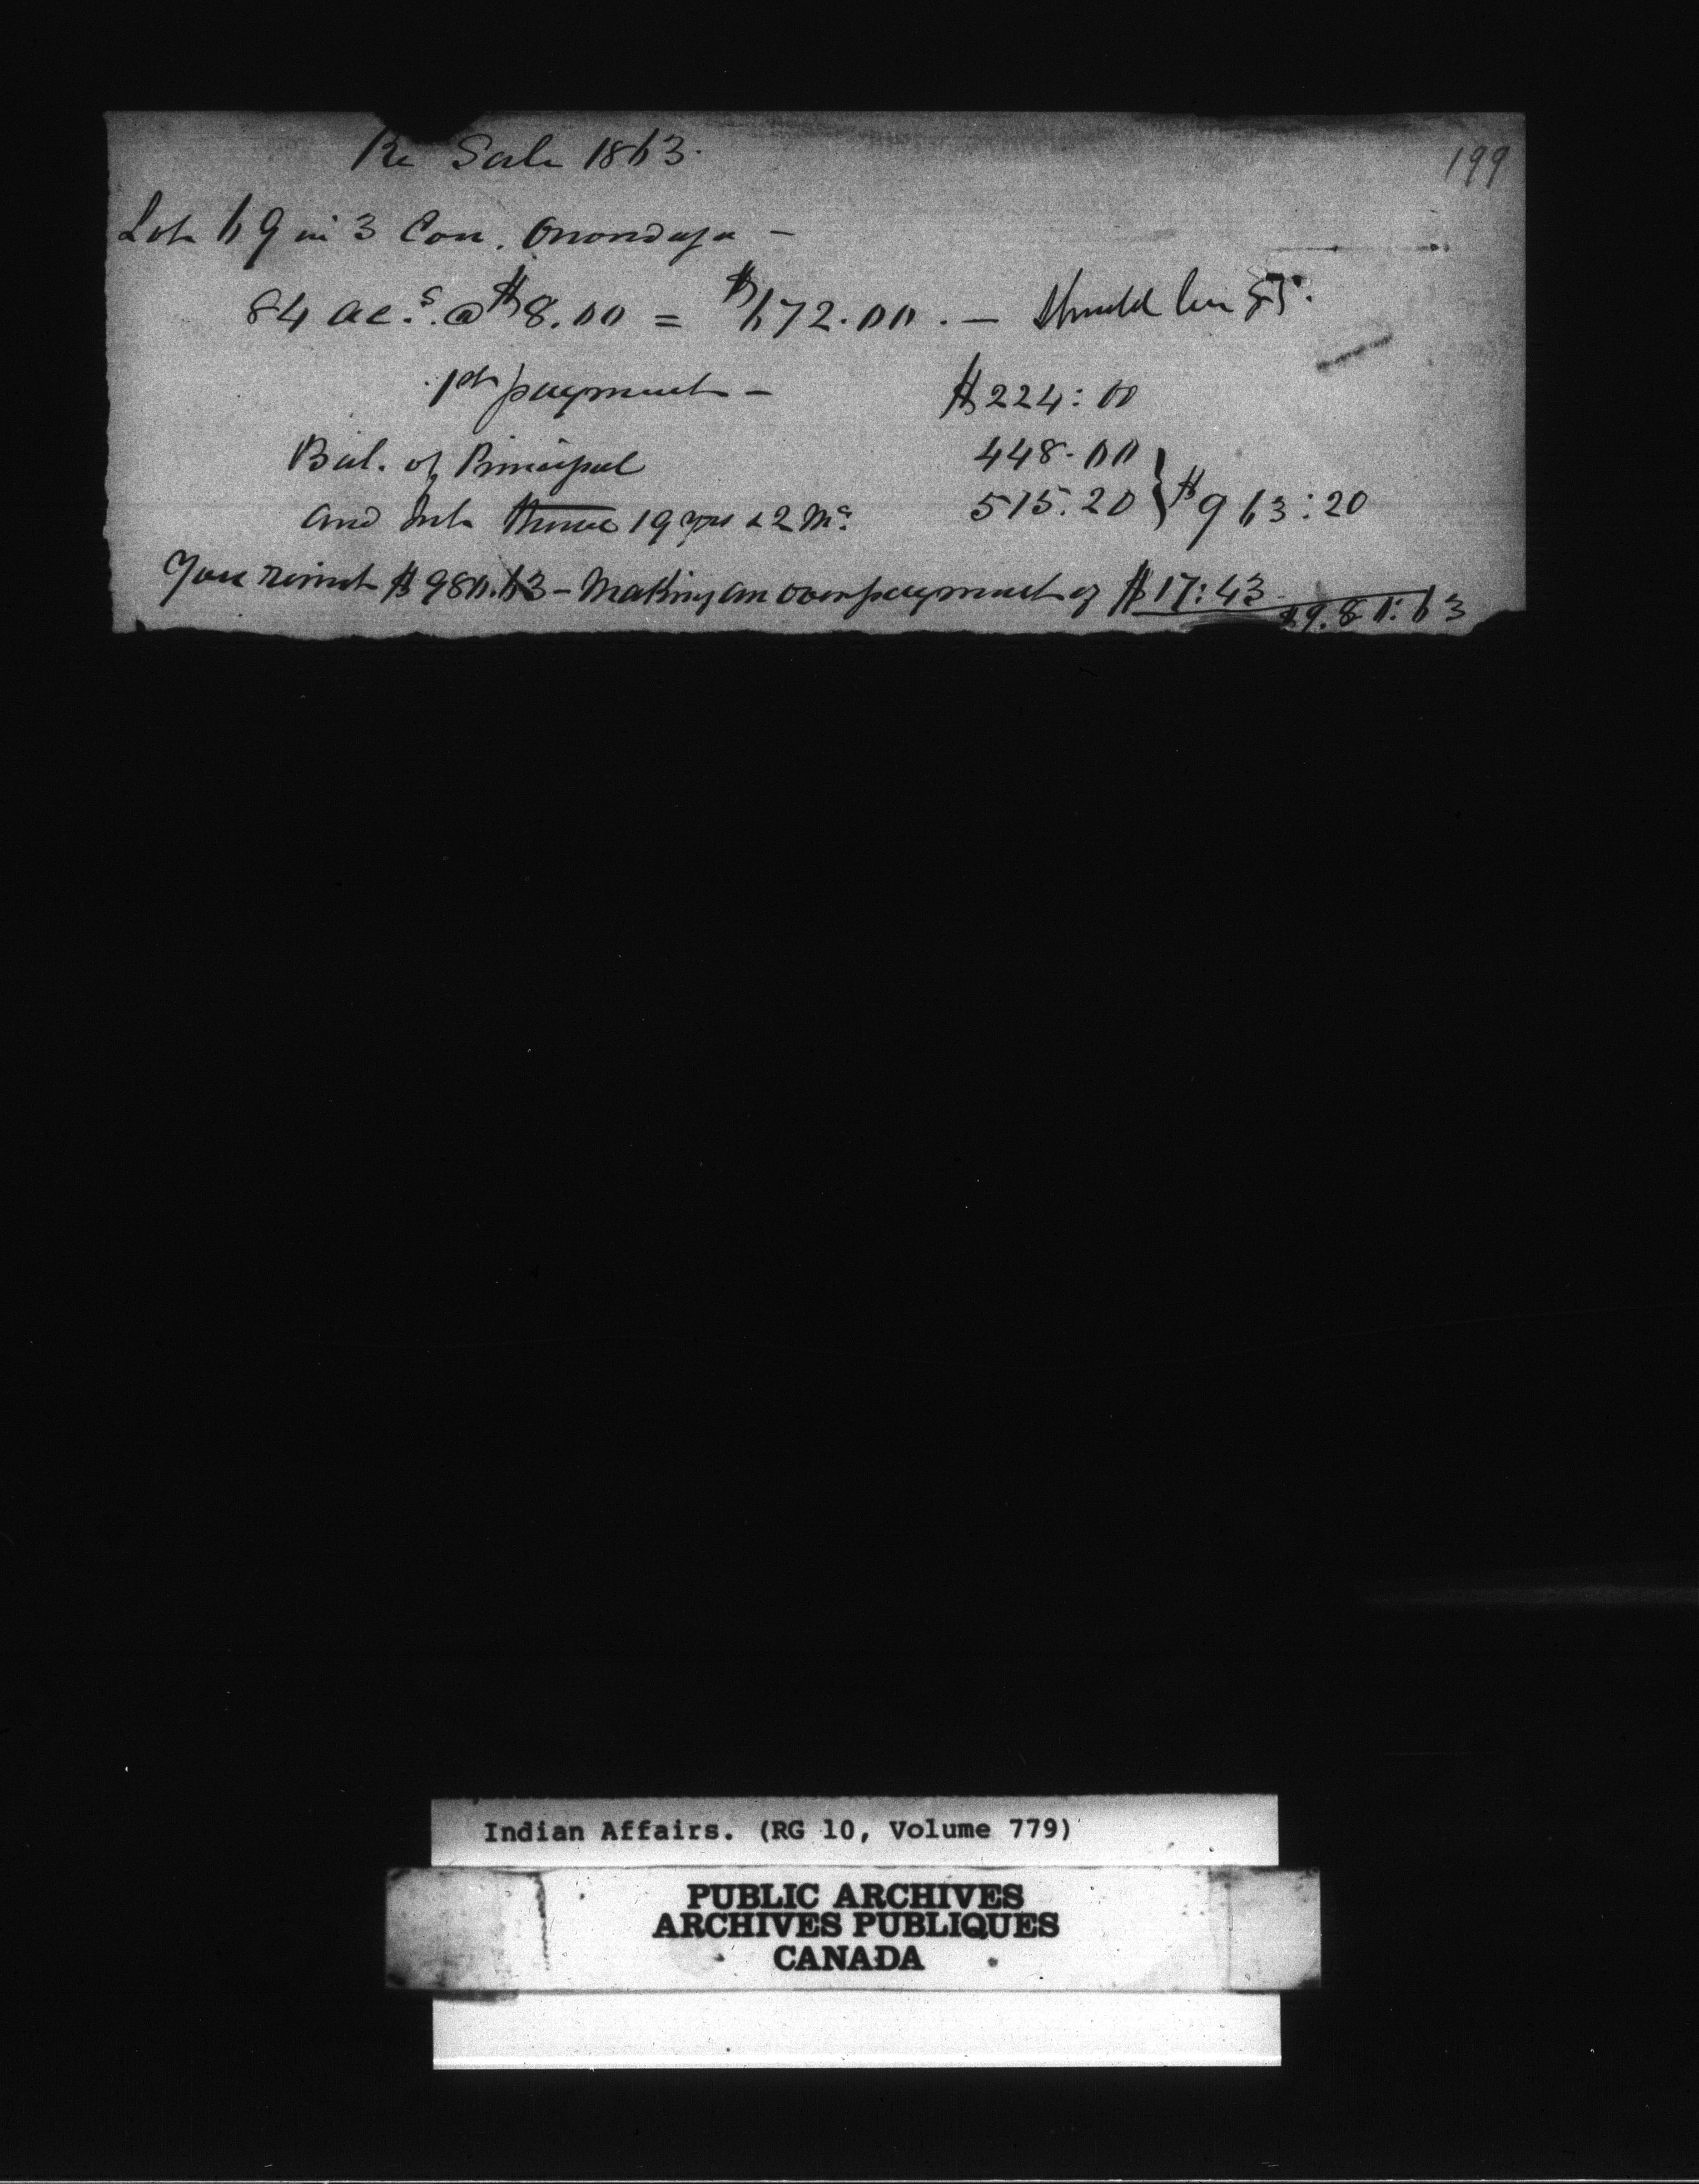 Re Sale 1863.
199
Lot 69 in 3 Con. Onondaga -
84 acs. @ $8.00 = $672.00. - Should be 85.
1st payment - $224:00
Bal. of Principal 448.00
and Int. thereon 19 yrs & 2 Ms. 515.20 } $963:20
You remit $980.63 - Making an overpayment of $17:43
$980:63
Indian Affairs. (RG 10, Volume 779)
PUBLIC ARCHIVES
ARCHIVES PUBLIQUES
CANADA